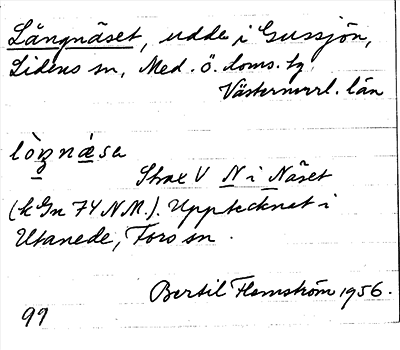 Långnäset, udde i Gussjön,
Lidens sn, Med. ö. doms. tg
Västernorrl. län
lòŋnæ̀sa
Strax V N i Näset
(k Gn 74 NM.). Upptecknat i
Utanede, Fors sn.
Bertil Flemström 1956.
99